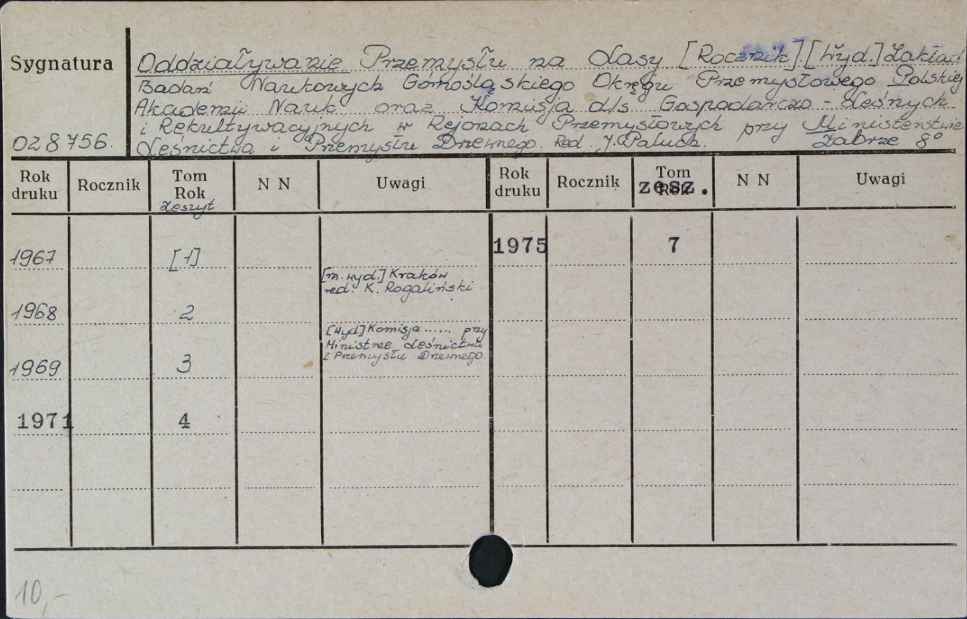 Sygnatura
028756.
Oddziaływanie Przemysłu na Lasy [Rocznik] [Wyd.] Zakład
Badań Naukowych Górnośląskiego Okręgu Przemysłowego Polskiej
Akademii Nauk oraz Komisja d/s Gospodarczo-Leśnych
i Rekultywacyjnych w Rejonach Przemysłowych przy Ministerstwie
Leśnictwa i Przemysłu Drzewnego. Red. J. Paluch. Zabrze 8°
Rok druku Rocznik Tom Rok zeszyt N N Uwagi Rok druku Rocznik Tom Rok zesz. N N Uwagi
1967 [1] 1975 7
[m. wyd.] Kraków
red. K. Rogaliński
1968 2
[Wyd] Komisja ...... przy
Ministrze Leśnictwa
i Przemysłu Drzewnego
1969 3
1971 4
10,-